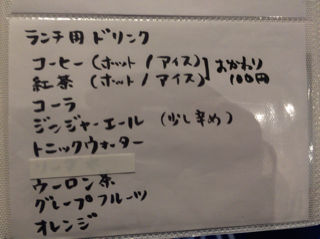 ランチ用 ドリンク
コーヒー (ホット / アイス) おかわり
紅茶 (ホット / アイス) 100円
コーラ
ジンジャーエール (少し辛め)
トニックウォーター
ウーロン茶
グレープフルーツ
オレンジ